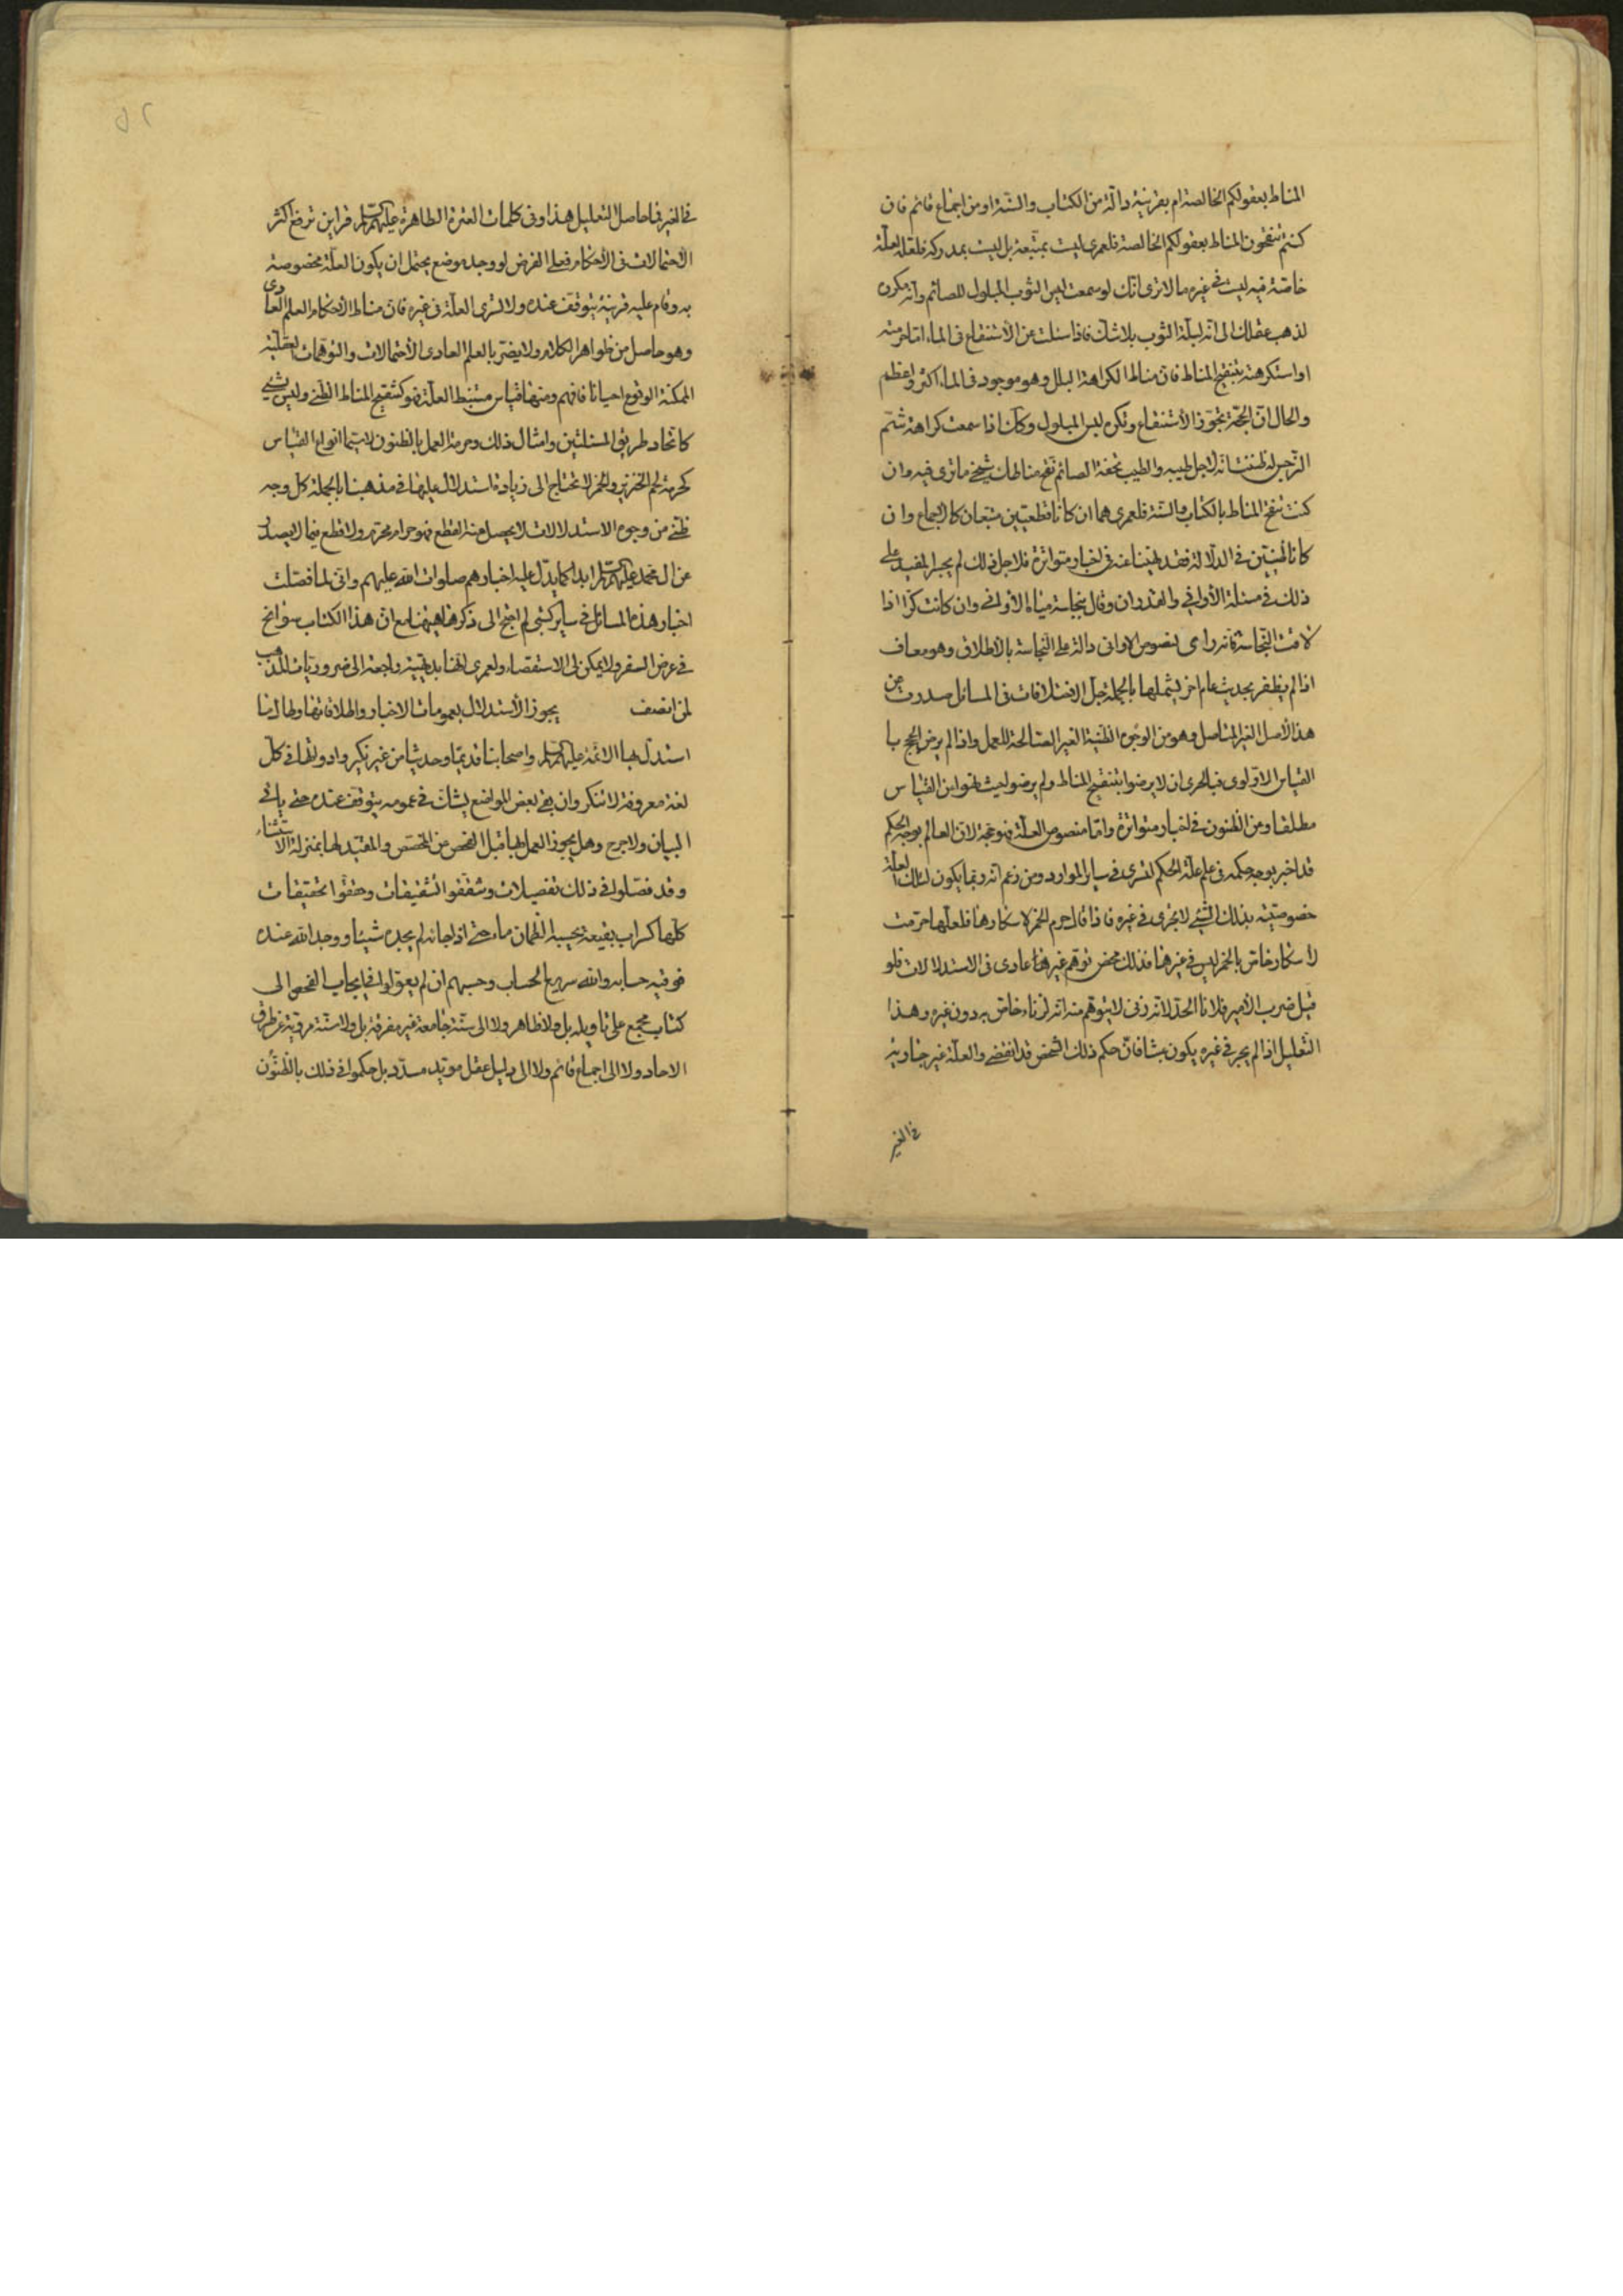 المناط بعقولكم الخالصة ام بقرينة دالة من الكتاب والسنة او من اجماع قائم فان
كنتم تنقحون المناط بعقولكم الخالصة فلعمرى ليست بمتبعة بل ليست بمدركة فلعل العلة
خاصة فيه ليست فى غيره مالا ترى انك لو سمعت لبس الثوب المبلول للصائم وانه مكروه
لذهب عقلك الى انه لبلة الثوب بلاشك فاذا سئلت عن الاستنقاع فى الماء اما حرمته
او استكرهته بتنقيح المناط فان مناط الكراهة البلل وهو موجود فى الماء اكثر واعظم
والحال ان الحجة يجوز الاستنقاع وتكره لبس المبلول وكأن اذا سمعت كراهة شم
النرجس له ظننت انه لاجل طيبه والطيب تحفة الصائم فتح مناطك شيخ ما ترى فيه وان
كنت تنقح المناط بالكتاب والسنة فلعمرى هما ان كانا قطعيين متبعان كالاجماع وان
كانا ظنيين فى الدلالة فقد نهينا عنه فى اخبار متواترة فلاجل ذلك لم يجسر المفيد على
ذلك فى مسئلة الأوانى والغدران وقال بنجاسة مياه الأوانى وان كانت كرا اذا
لاقت النجاسة فانه راى نصوص الاوانى دالة على النجاسة بالاطلاق وهو معاف
اذا لم يظفر بحديث عام اخر يشملها بالجملة جل الاختلافات فى المسائل صدرت من
هذا الأصل الغير المتاصل وهو من الوجوه الظنية الغير الصالحة للعمل واذا لم يرض الحجج با
القياس الاولوى فبالحرى ان لا يرضوا بتنقيح المناط ولم يرضوا ليث نهوا من القياس
مطلقا ومن الظنون فى اخبار متواترة واما منصوص العلة فهو حجة لان العالم بوجه الحكم
قد اخبر بوجه حكمه فى علم علة الحكم لتسرى فى ساير الموارد ومن زعم انه ربما يكون لتلك العلة
خصوصية بذلك الشىء لا تجرى فى غيره فاذا قال حرم الخمر لاسكارها فلعلها حرمت
لاسكار خاص بالخمر ليس فى غيرها فذلك محض توهم غير عادى فى الاستدلالات فلو
قيل ضرب الأمير فلانا الحد لانه زنى لا يتوهم منه انه لزناء خاص به دون غيره وهذا
التعليل اذا لم يجر فى غيره يكون عبثا فان حكم ذلك الشخص قد انقضى والعلة غير جارية
فى الغير
فى الغير فما حاصل التعليل هذا وفى كلمات العترة الطاهرة عليهم السلم قراين ترفع اكثر
الاحتمالات فى الأحكام فعلى الفرض لو وجد موضع يحتمل ان يكون العلة مخصوصة
به وقام عليه قرينة يتوقف عنده ولا تسرى العلة فى غيره فان مناط الأحكام العلم العادى
وهو حاصل من ظواهر الكلام ولا يضر بالعلم العادى الأحتمالات والتوهمات العقلية
الممكنة الوقوع احيانا فافهم ومنها قياس مستنبط العلة فهو كتنقيح المناط الظنى وليس بشىء
كاتحاد طريق المسئلتين وامثال ذلك وحرمة العمل بالظنون لاسيما انواع القياس
كحرمة لحم الخنزير والخمر لا تحتاج الى زيادة استدلال عليها فى مذهبنا بالجملة كل وجه
ظنى من وجوه الاستدلالات لا يحصل منه القطع فهو حرام محرم ولا قطع فيما لا يصدر
عن ال محمد عليهم السلم ابدا كما يدل عليه اخبارهم صلوات الله عليهم وانى لما فصلت
اخبار هذه المسائل فى ساير كتبى لم احتج الى ذكرها هيهنا مع ان هذا الكتاب سوانح
فى عرض السفر ولا يمكن لى الاستقصاء ولعمرى انها بديهية راجعة الى ضروريات المذهب
لمن انصف يجوز الأستدلال بعمومات الاخبار واطلاقاتها ولها انها
استدل بها الائمة عليهم السلم واصحابنا قديما وحديثا من غير نكير وادواتها فى كل
لغة معروفة لا تنكر وان فى بعض المواضع يشك فى عمومه يتوقف عنده حتى ياتى
البيان ولا حرج وهل يجوز العمل بها قبل الفحص عن المخصص والمقيد لها بمنزلة الاستثناء
وقد فصلوا فى ذلك تفصيلات وشققوا تشقيقات وحققوا تحقيقات
كلها كسراب بقيعة يحسبه الظمان ماء حتى اذا جائه لم يجده شيئا ووجد الله عنده
فوفيه حسابه والله سريع الحساب وحسبهم ان لم يعولوا فى ايجاب الفحص الى
كتاب مجمع على تاويله بل ولا ظاهر ولا الى سنة جامعة غير مفرقة بل ولا سنة مروية عن طرق
الاحاد ولا الى اجماع قائم ولا الى دليل عقل مويد مسدد بل حكموا فى ذلك بالظنون